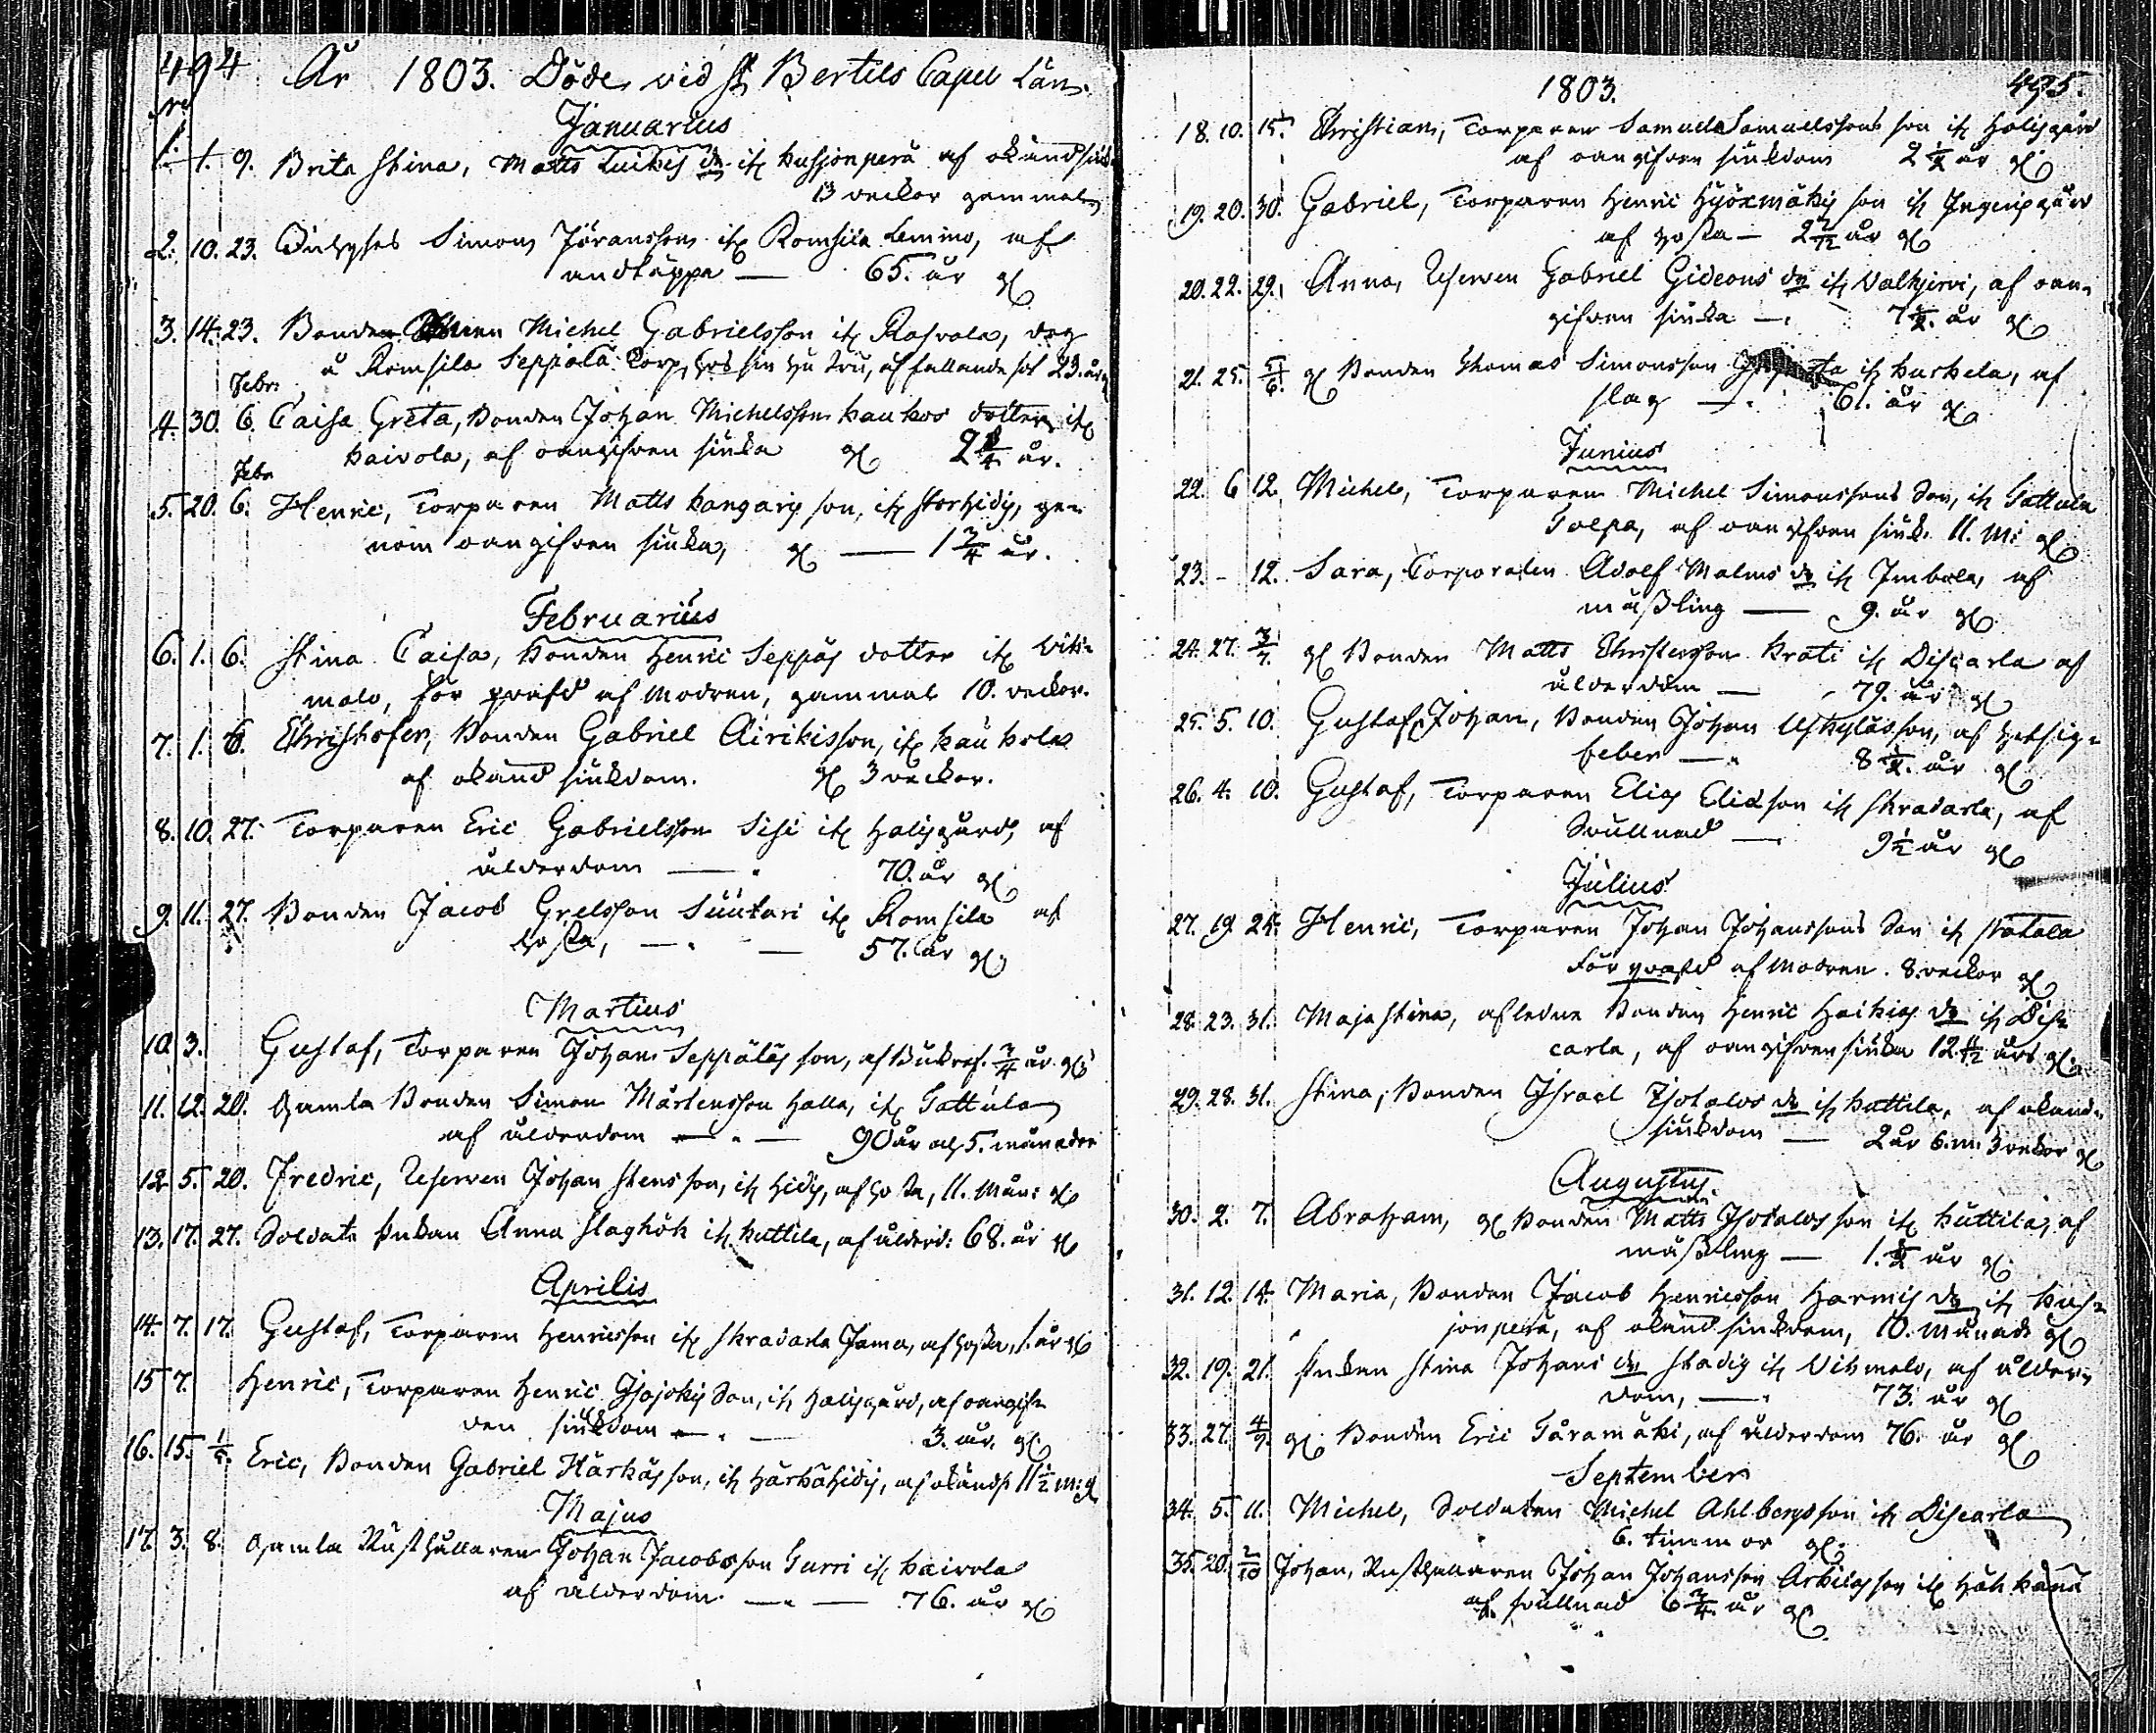 494 År 1803. Döde vid St Bertils Capell Län.
Januarius
1. 1. 9. Brita Stina, Matts dr ifr Kusjonperä af okänd
13 veckor gammal
2. 10. 23. Simon Jöransson ifr Romsila Lemmo, af
andtäppa — 65. år gl
3. 14. 23. Bonden Michel Gabrielsson ifr Rasvala, dog
å Romsila Seppälä Torp, hos sin hustru, af fallandesot 23. år
Febr:
4. 30. 6. Caisa Greta, Bonden Johan Michelsson Kaukos dotter ifr
Kaivola, af oangifven siuka gl 2 år.
Febr
5. 20. 6. Henric, Torparen Matts Kangaris son, ifr Storhidis, ge-
nom oangifven siuka, gl — 1 2/4 år.
Februarius
6. 1. 6. Stina Caisa, Bonden Henric Seppäs dotter ifr Vih-
malo, för qvafd af Modren, gammal 10. veckor.
7. 1. 6. Christofer, Bonden Gabriel Airikisson, ifr Kaukola
af okänd siukdom. gl 3 veckor.
8. 10. 27. Torparen Eric Gabrielsson Sisi ifr Halisgård, af
ålderdom — . 70. år gl
9. 11. 27. Bonden Jacob Grelsson Suutari ifr Romsila af
hosta, — . — 57. år gl
Martius
10. 3. Gustaf, Torparen Johan Seppäläs son, af Bukref. 3/4 år. gl
11. 12. 20. Gamla Bonden Simon Mårtensson Halla, ifr Tattula
af ålderdom — . — 90 år och 5. månader
12. 5. 20. Fredric, Reserven Johan Stens son, ifr Hidis, af hosta, 11. Mån: gl
13. 17. 27. Soldats Enkan Anna Slaghök ifr Kuttila, af ålderd: 68. år gl
Aprilis
14. 7. 17. Gustaf, Torparen Henricsson ifr Skradarla Jama, af hosta, 1. år gl
15 7. Henric, Torparen Henric Isojokis Son, ifr Halisgård, af oangif-
ven siukdom — . — 3. år. gl
16. 15. 1/5. Eric, Bonden Gabriel Härkäs son, ifr Härkähidis, af okänd s. 11 1/2 m: gl
Majus
17. 3. 8. Gamla Rusthållaren Johan Jacobsson Gurri ifr Kaivola
af ålderdom. — . — 76. år gl
1803. 495.
18. 10. 15. Christian, Torparen Samuel Samuelssons son ifr Halisgård
af oangifven siukdom 2 1/2 år gl
19. 20. 30. Gabriel, Torparen Henric son ifr Ingenisgård
af hosta — 2 2/12 år gl
20. 22. 29. Anna, Reserven Gabriel Gideons dr ifr Valkjervi, af oan-
gifven siuka — . 7 1/2. år gl
21. 25. 5/6. gl Bonden Thomas Simonsson ifr Kuskela, af
slag — . 61. år gl
Junius
22. 6 12. Michel, Torparen Michel Simonssons Son, ifr Tattula
Tolpa, af oangifven siuk. 11. M: gl
23. - 12. Sara, Corporalen Adolf Malms dr ifr Imbola, af
mäßling — 9. år gl
24. 27. 3/7. gl Bonden Matts Christersson Krati ifr Discarla af
ålderdom — . 79. år gl
25. 5. 10. Gustaf Johan, Bonden Johan Uskylässon, af hetsig-
feber — . 8 1/2. år gl
26. 4. 10. Gustaf, Torparen Elias Eliæson ifr Skradarla, af
Svullnad — 9 1/2 år gl
Julius
27. 19. 24. Henric, Torparen Johan Johanssons Son ifr Statala
För qvafd af Modren. 8 veckor gl
28. 23. 31. Maja Stina, afledne Bonden Henric Heikias dr ifr Dis-
carla, af oangifven siuka 12 4/12 års gl.
29. 28. 31. Stina, Bonden Israel Isotalos dr ifr Kuttila, af okänd-
siukdom — 2 år 6. m. 3 veckor gl
Augustus
30. 2. 7. Abraham, gl Bonden Matts Isotalos son ifr Kuttila, af
mäßling — 1. 1/2 år gl.
31. 12. 14. Maria, Bonden Jacob Henricsson Harmis dr ifr Kus-
jonperä, af okänd siukdom, 10. Månad gl
32. 19. 21. Enkan Stina Johans dr Stadig ifr Vihmalo, af ålder-
dom, — . 73. år gl
33. 27. 4/9. gl. Bonden Eric Tåramäki, af ålderdom 76. år gl
September
34. 5. 11. Michel, Soldaten Michel Ahlbergs son ifr Discarla
6. timmar gl.
35. 20. 2/10 Johan, Rusthållaren Johan Johansson Arkilas son ifr
af svullnad 6 3/4. år gl.